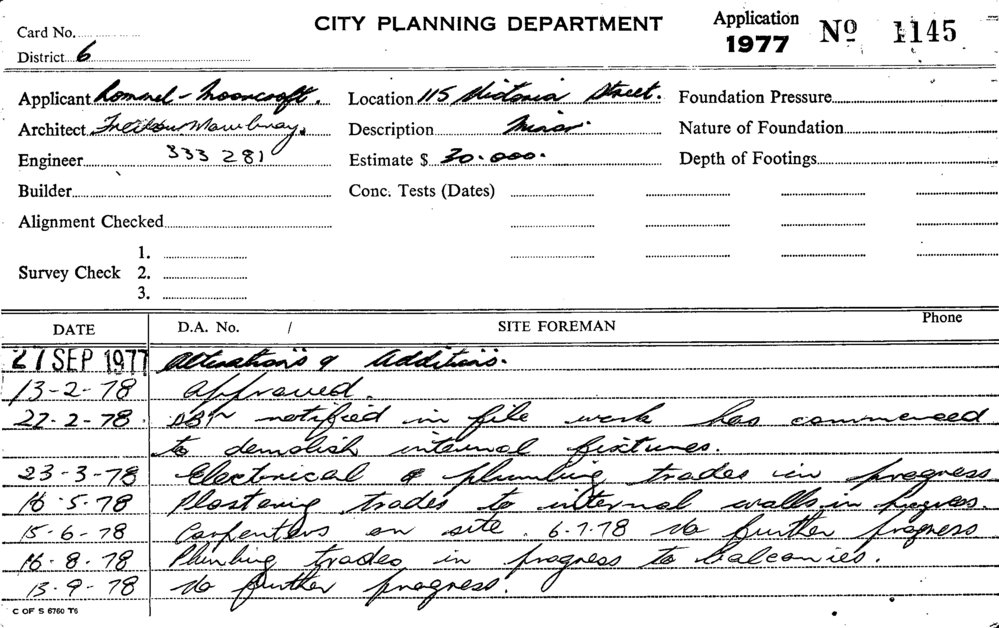 CITY PLANNING DEPARTMENT
Application 1977 Nº 1145
Card No.
District 6
Applicant Rommel - Mooncroft. Location 115 Victoria Street. Foundation Pressure
Architect Description Minor. Nature of Foundation
Engineer 333 281 Estimate $ 30.000. Depth of Footings
Builder Conc. Tests (Dates)
Alignment Checked
Survey Check 1.
2.
3.
DATE D.A. No. / SITE FOREMAN Phone
27 SEP 1977 Alterations & Additions.
13-2-78 approved.
22-2-78. notified in file work has commenced
to demolish internal fixtures.
23-3-78 Electrical & plumbing trades in progress
16.5.78 Plastering trades to internal walls in progress.
15-6-78 Carpenters on site. 6-7-78 No further progress
16-8.78 Plumbing trades in progress to balconies.
13-9-78 No further progress.
C OF S 6760 T6